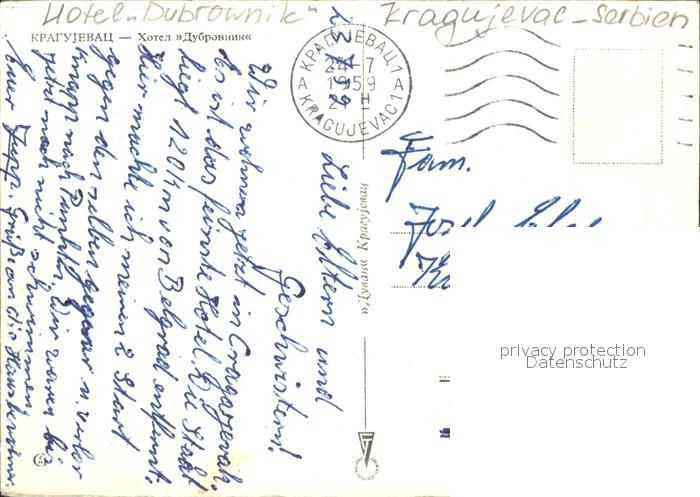 Hotel „Dubrownik“ Kragujevac - Serbien
КРАГУЈЕВАЦ — Хотел »Дубровник«
КРАГУЈЕВАЦ 1
24-7
1959
21 H
A A
KRAGUJEVAC 1
Liebe Eltern und
Geschwistern!
Wir wohnen jetzt in
Es ist das Hotel. Die Stadt
liegt 120 km von Belgrad entfernt.
Hier machte ich meinen 2 Start
gegen den selben Gegner u. verlor
knapp nach Punkten. Wir waren bis
jetzt noch nicht schwimmen
Euer Sepp Gruß an die
»Дувани« Крагујевац
Fam.
Josef
privacy protection
Datenschutz